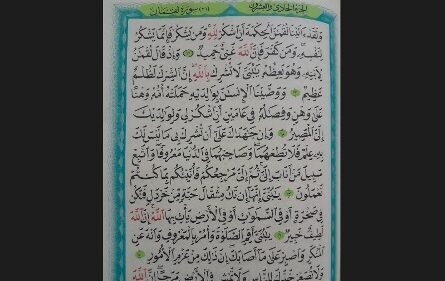 الجزء الحادي والعشرون (٣١) سورة لقمان
وَلَقَدْ ءَاتَيْنَا لُقْمَٰنَ ٱلْحِكْمَةَ أَنِ ٱشْكُرْ لِلَّهِ وَمَن يَشْكُرْ فَإِنَّمَا يَشْكُرُ
لِنَفْسِهِۦ وَمَن كَفَرَ فَإِنَّ ٱللَّهَ غَنِىٌّ حَمِيدٌ ١٢ وَإِذْ قَالَ لُقْمَٰنُ
لِٱبْنِهِۦ وَهُوَ يَعِظُهُۥ يَٰبُنَىَّ لَا تُشْرِكْ بِٱللَّهِ إِنَّ ٱلشِّرْكَ لَظُلْمٌ
عَظِيمٌ ١٣ وَوَصَّيْنَا ٱلْإِنسَٰنَ بِوَٰلِدَيْهِ حَمَلَتْهُ أُمُّهُۥ وَهْنًا
عَلَىٰ وَهْنٍ وَفِصَٰلُهُۥ فِى عَامَيْنِ أَنِ ٱشْكُرْ لِى وَلِوَٰلِدَيْكَ
إِلَىَّ ٱلْمَصِيرُ ١٤ وَإِن جَٰهَدَاكَ عَلَىٰٓ أَن تُشْرِكَ بِى مَا لَيْسَ لَكَ
بِهِۦ عِلْمٌ فَلَا تُطِعْهُمَا وَصَاحِبْهُمَا فِى ٱلدُّنْيَا مَعْرُوفًا وَٱتَّبِعْ
سَبِيلَ مَنْ أَنَابَ إِلَىَّ ثُمَّ إِلَىَّ مَرْجِعُكُمْ فَأُنَبِّئُكُم بِمَا كُنتُمْ
تَعْمَلُونَ ١٥ يَٰبُنَىَّ إِنَّهَآ إِن تَكُ مِثْقَالَ حَبَّةٍ مِّنْ خَرْدَلٍ فَتَكُن
فِى صَخْرَةٍ أَوْ فِى ٱلسَّمَٰوَٰتِ أَوْ فِى ٱلْأَرْضِ يَأْتِ بِهَا ٱللَّهُ إِنَّ ٱللَّهَ
لَطِيفٌ خَبِيرٌ ١٦ يَٰبُنَىَّ أَقِمِ ٱلصَّلَوٰةَ وَأْمُرْ بِٱلْمَعْرُوفِ وَٱنْهَ عَنِ
ٱلْمُنكَرِ وَٱصْبِرْ عَلَىٰ مَآ أَصَابَكَ إِنَّ ذَٰلِكَ مِنْ عَزْمِ ٱلْأُمُورِ ١٧
وَلَا تُصَعِّرْ خَدَّكَ لِلنَّاسِ وَلَا تَمْشِ فِى ٱلْأَرْضِ مَرَحًا إِنَّ ٱللَّهَ